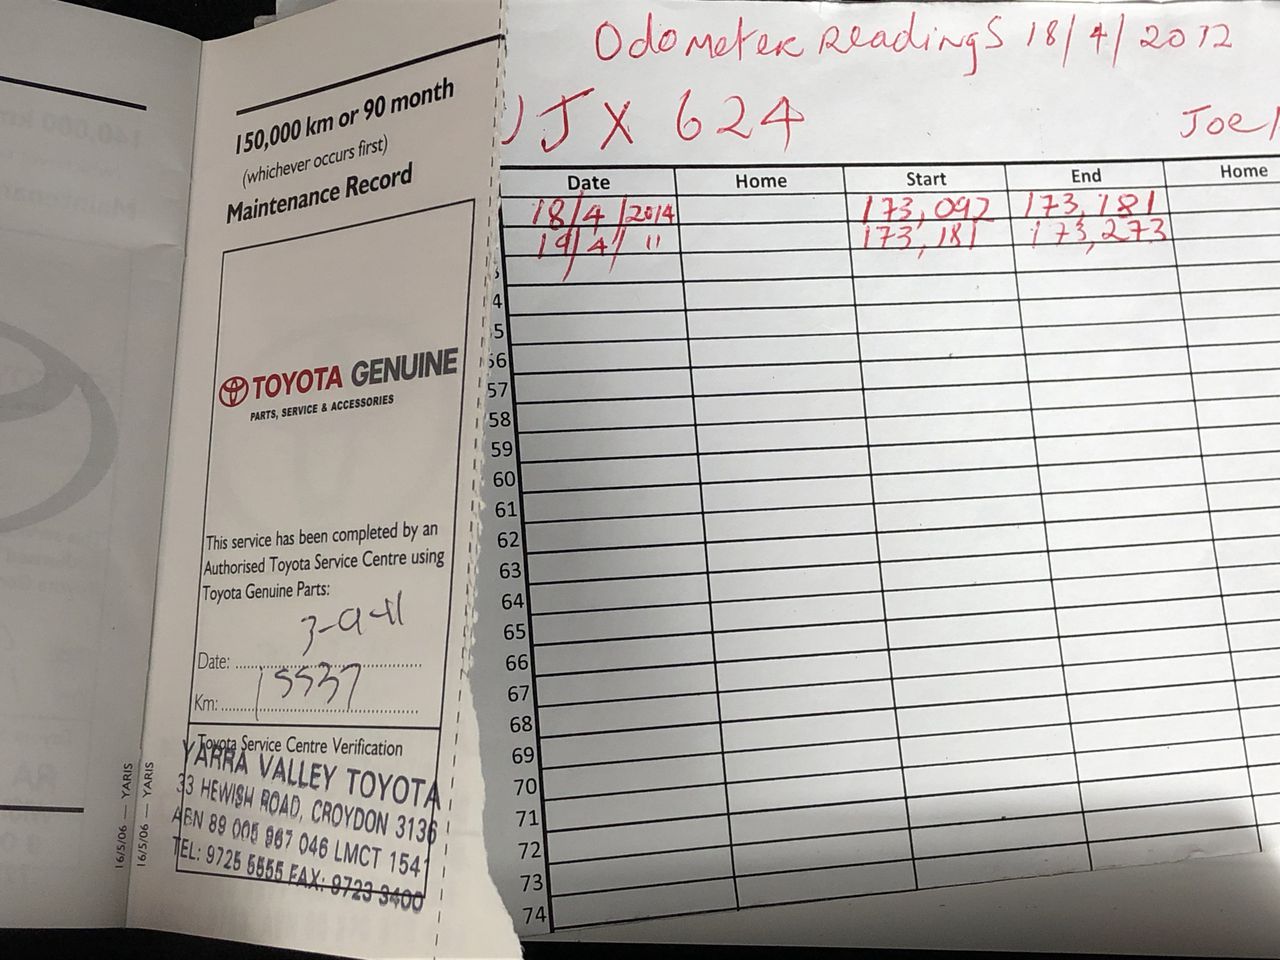 150,000 km or 90 month
(whichever occurs first)
Maintenance Record
TOYOTA GENUINE
PARTS, SERVICE & ACCESSORIES
This service has been completed by an
Authorised Toyota Service Centre using
Toyota Genuine Parts:
Date: 3-9-11
Km: 15537
Toyota Service Centre Verification
YARRA VALLEY TOYOTA
33 HEWISH ROAD, CROYDON 3136
ABN 89 005 967 046 LMCT 154
TEL: 9725 5555 FAX: 9723 3400
16/5/06 — YARIS
16/5/06 — YARIS
Odometer Readings 18/4/2012
UJX 624
Joel
Date Home Start End Home
18/4/2014 173,092 173,181
19/4/ " 173,181 173,273
4
5
56
57
58
59
60
61
62
63
64
65
66
67
68
69
70
71
72
73
74